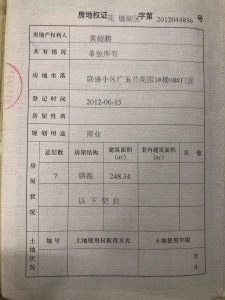 房地权证芜 镜湖区字第 2012044836 号
房地产权利人 黄绍鹏
共有情况 单独所有
房地坐落 联盛小区广玉兰花园1#楼08#门面
登记时间 2012-06-15
房屋性质
规划用途 商业
房屋状况 总层数 房屋结构 建筑面积(m²) 套内建筑面积(m²) 其他
7 钢混 248.34
以下空白
土地状况 地号 土地使用权取得方式 土地使用年限
至 止